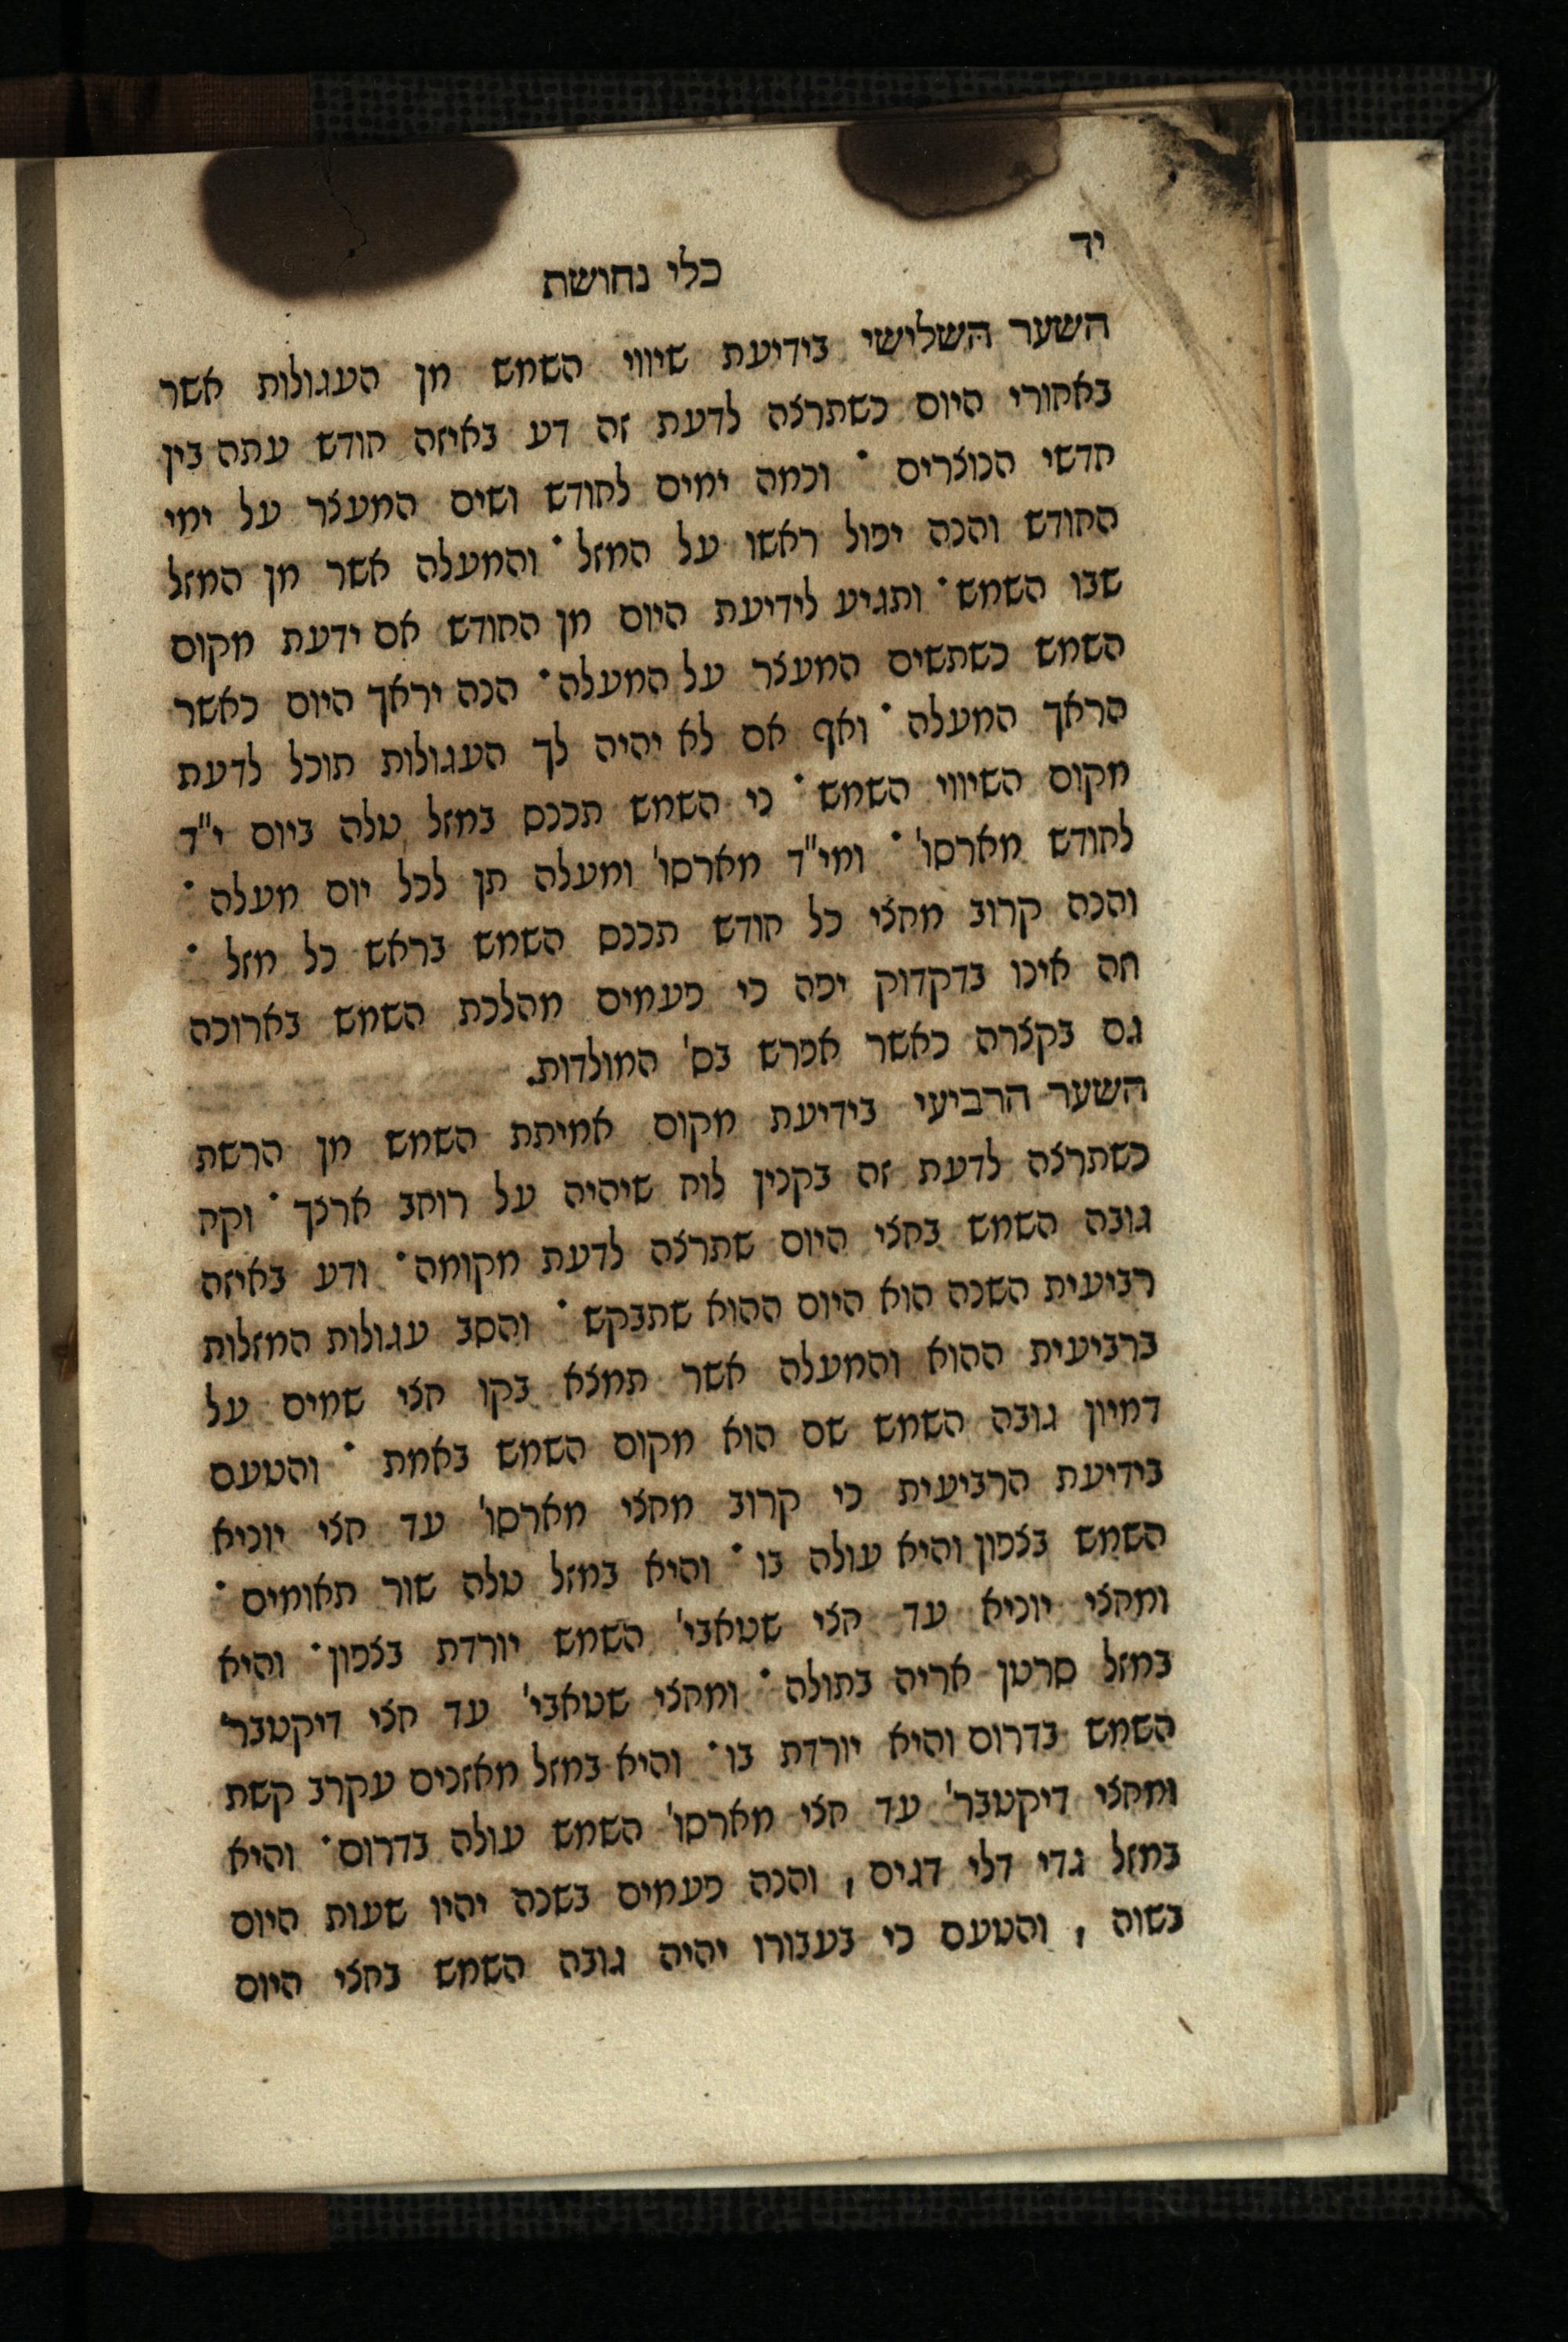 יד
כלי נחושת
השער השלישי בידיעת שיווי השמש מן העגולות אשר
באחורי היום כשתרצה לדעת זה דע באיזה חודש עתה בין
חדשי הנוצרים ֹ וכמה ימים לחודש ושים המעצר על ימי
החודש והנה יפול ראשו על המזל ֹ והמעלה אשר מן המזל
שבו השמש ֹ ותגיע לידיעת היום מן החודש אם ידעת מקום
השמש כשתשים המעצר על המעלה ֹ הנה יראך היום כאשר
הראך המעלה ֹ ואף אם לא יהיה לך העגולות תוכל לדעת
מקום השיווי השמש ֹ כי השמש תכנס במזל טלה ביום י"ד
לחודש מארסו' ֹ ומי"ד מארסו' ומעלה תן לכל יום מעלה ֹ
והנה קרוב מחצי כל חודש תכנס השמש בראש כל מזל ֹ
וזה אינו בדקדוק יפה כי פעמים מהלכת השמש בארוכה
גם בקצרה כאשר אפרש בס' המולדות.
השער הרביעי בידיעת מקום אמיתת השמש מן הרשת
כשתרצה לדעת זה בקנין לוח שיהיה על רוחב ארצך ֹ וקח
גובה השמש בחצי היום שתרצה לדעת מקומה ֹ ודע באיזה
רביעית השנה הוא היום ההוא שתבקש ֹ והסב עגולות המזלות
ברביעית ההוא והמעלה אשר תמצא בקו חצי שמים על
דמיון גובה השמש שם הוא מקום השמש באמת ֹ והטעם
בידיעת הרביעית כי קרוב מחצי מארסו' עד חצי יוניא
השמש בצפון והיא עולה בו ֹ והיא במזל טלה שור תאומים ֹ
ומחצי יוניא עד חצי שטאבי' השמש יורדת בצפון ֹ והיא
במזל סרטן אריה בתולה ֹ ומחצי שטאבי' עד חצי דיקטבר'
השמש בדרום והיא יורדת בו ֹ והיא במזל מאזנים עקרב קשת
ומחצי דיקטבר' עד חצי מארסו' השמש עולה בדרום ֹ והיא
במזל גדי דלי דגים , והנה פעמים בשנה יהיו שעות היום
בשוה , והטעם כי בעבורו יהיה גובה השמש בחצי היום